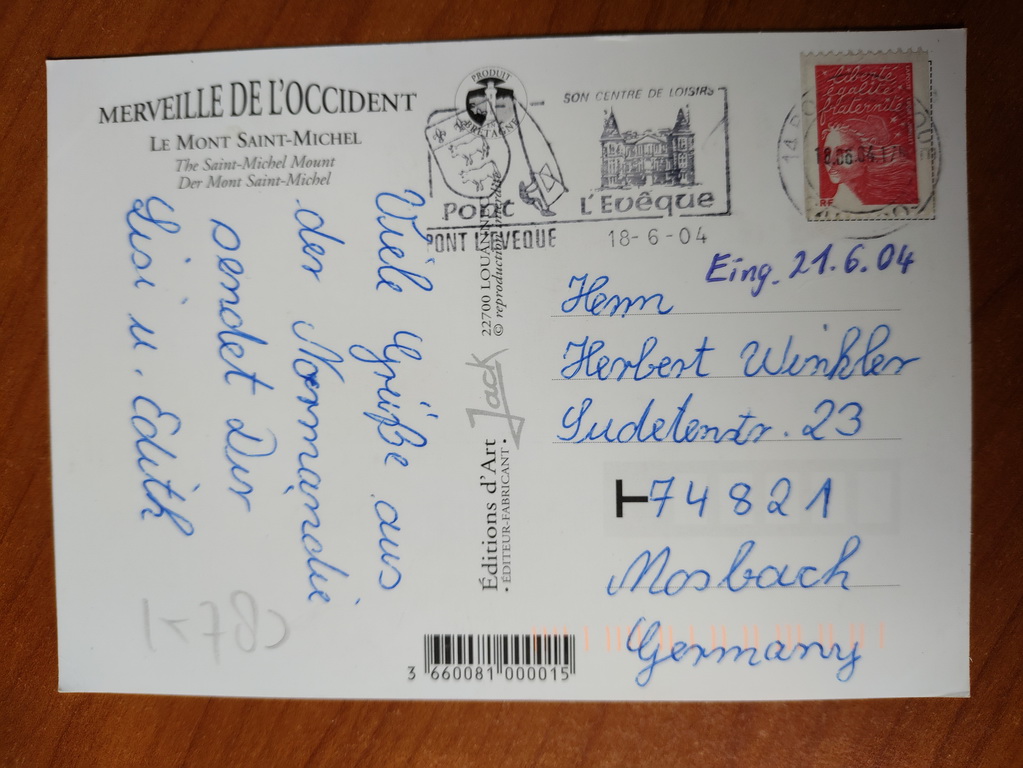 MERVEILLE DE L'OCCIDENT
LE MONT SAINT-MICHEL
The Saint-Michel Mount
Der Mont Saint-Michel
Viele Grüße aus
der Normandie
sendet Dir
Susi u. Edith
PRODUIT
BRETAGNE
SON CENTRE DE LOISIRS
PONT
L'EVÊQUE
PONT L'EVEQUE
18-6-04
liberté
égalité
fraternité
RF
18.06.04
Eing. 21.6.04
Herrn
Herbert Winkler
Sudetenstr. 23
T 74821
Mosbach
Germany
Éditions d'Art Jack
• ÉDITEUR-FABRICANT •
22700 LOUANNEC
© reproduction interdite
3 660081 000015